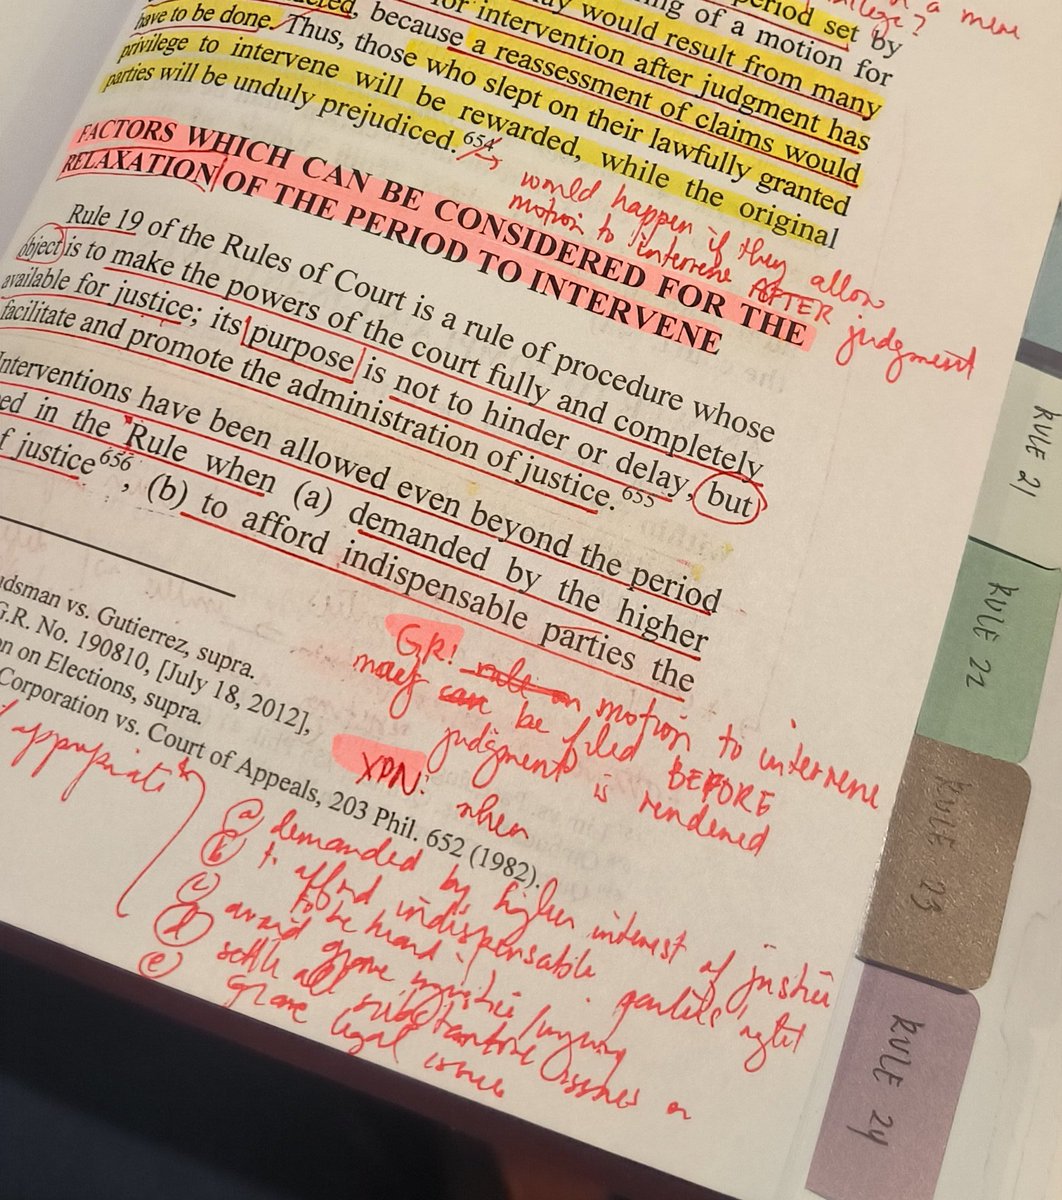 a mere
period set by
ng of a motion for
would result from many
for intervention after judgment has
, because a reassessment of claims would
have to be done. Thus, those who slept on their lawfully granted
privilege to intervene will be rewarded, while the original
parties will be unduly prejudiced.654
would happen if they allow
motion to intervene AFTER judgment
FACTORS WHICH CAN BE CONSIDERED FOR THE
RELAXATION OF THE PERIOD TO INTERVENE
Rule 19 of the Rules of Court is a rule of procedure whose
object is to make the powers of the court fully and completely
available for justice; its purpose is not to hinder or delay, but
facilitate and promote the administration of justice.655
Interventions have been allowed even beyond the period
ed in the Rule when (a) demanded by the higher
f justice656, (b) to afford indispensable parties the
dsman vs. Gutierrez, supra.
G.R. No. 190810, [July 18, 2012],
n on Elections, supra.
Corporation vs. Court of Appeals, 203 Phil. 652 (1982).
G.R! motion to intervene
may be filed BEFORE
judgment is rendered
XPN: when
(a) demanded by higher interest of justice
(b) to afford indispensable parties right
to be heard
(c) avoid grave injustice/injury
(d) settle all substantive issues or
(e) grave legal issues
RULE 21
RULE 22
RULE 23
RULE 24